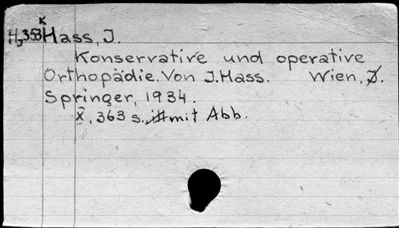 K
H,353 Hass, J.
Konservative und operative
Orthopädie. Von J. Hass. Wien, J.
Springer, 1934.
X, 363 s. mit Abb.